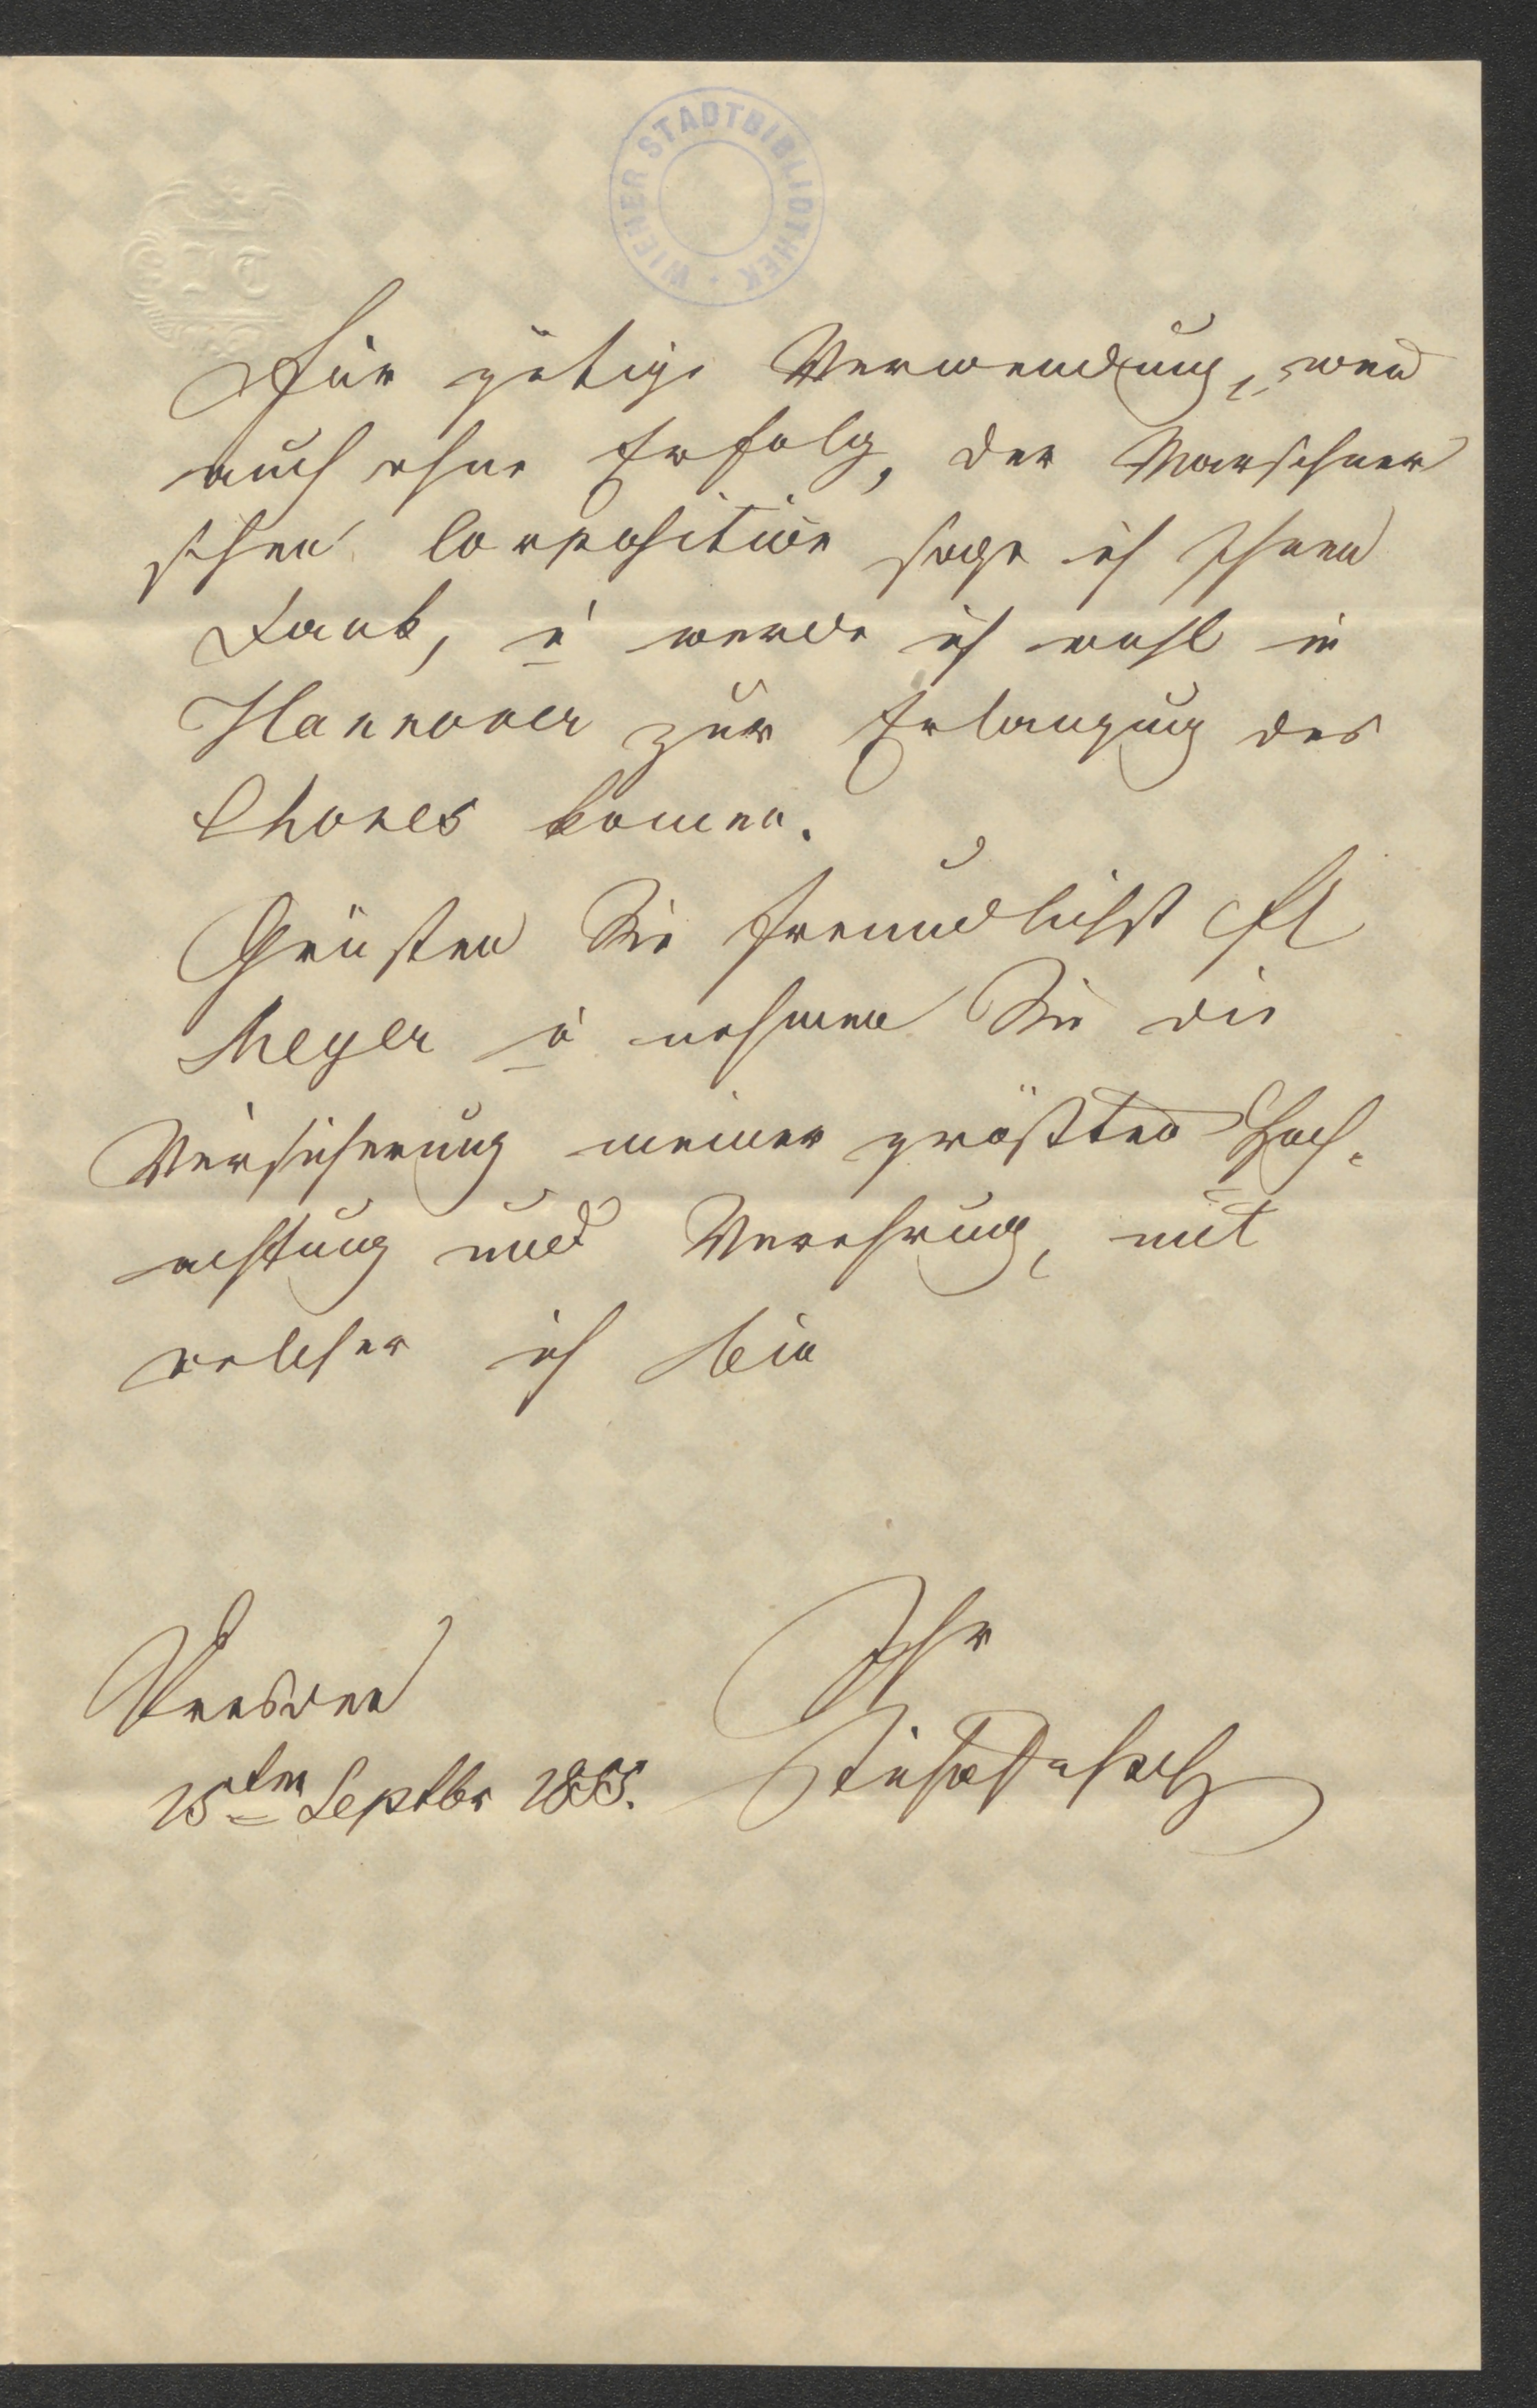 WIENER STADTBIBLIOTHEK
Für gütige Verwendung, wen̄
auch ohne Erfolg, der Marschner
schen Composition sage ich Ihnen
Dank, u werde ich wohl in
Hannover zur Erlangung des
Chores kom̄en.
Grüßen Sie freundlichst
Meyer u nehmen Sie die
Versicherung meiner größten Hoch-
achtung und Verehrung, mit
welcher ich bin
Ihr
Dresden
Tichatscheck
15ten Septbr 1885.